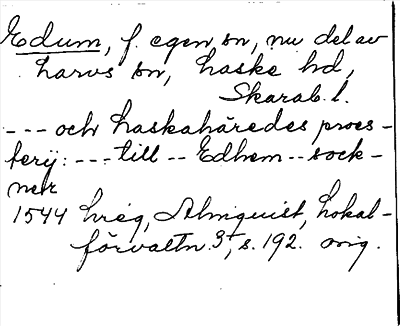 Edum, f. egen sn, nu del av
Larvs sn, Laske hd,
Skarab. l.
--- och Laskahäredes proes-
terij: --- till -- Edhem -- sock-
ner
1544 hreg, Almquist, Lokal-
förvaltn. 3, s. 192. orig.